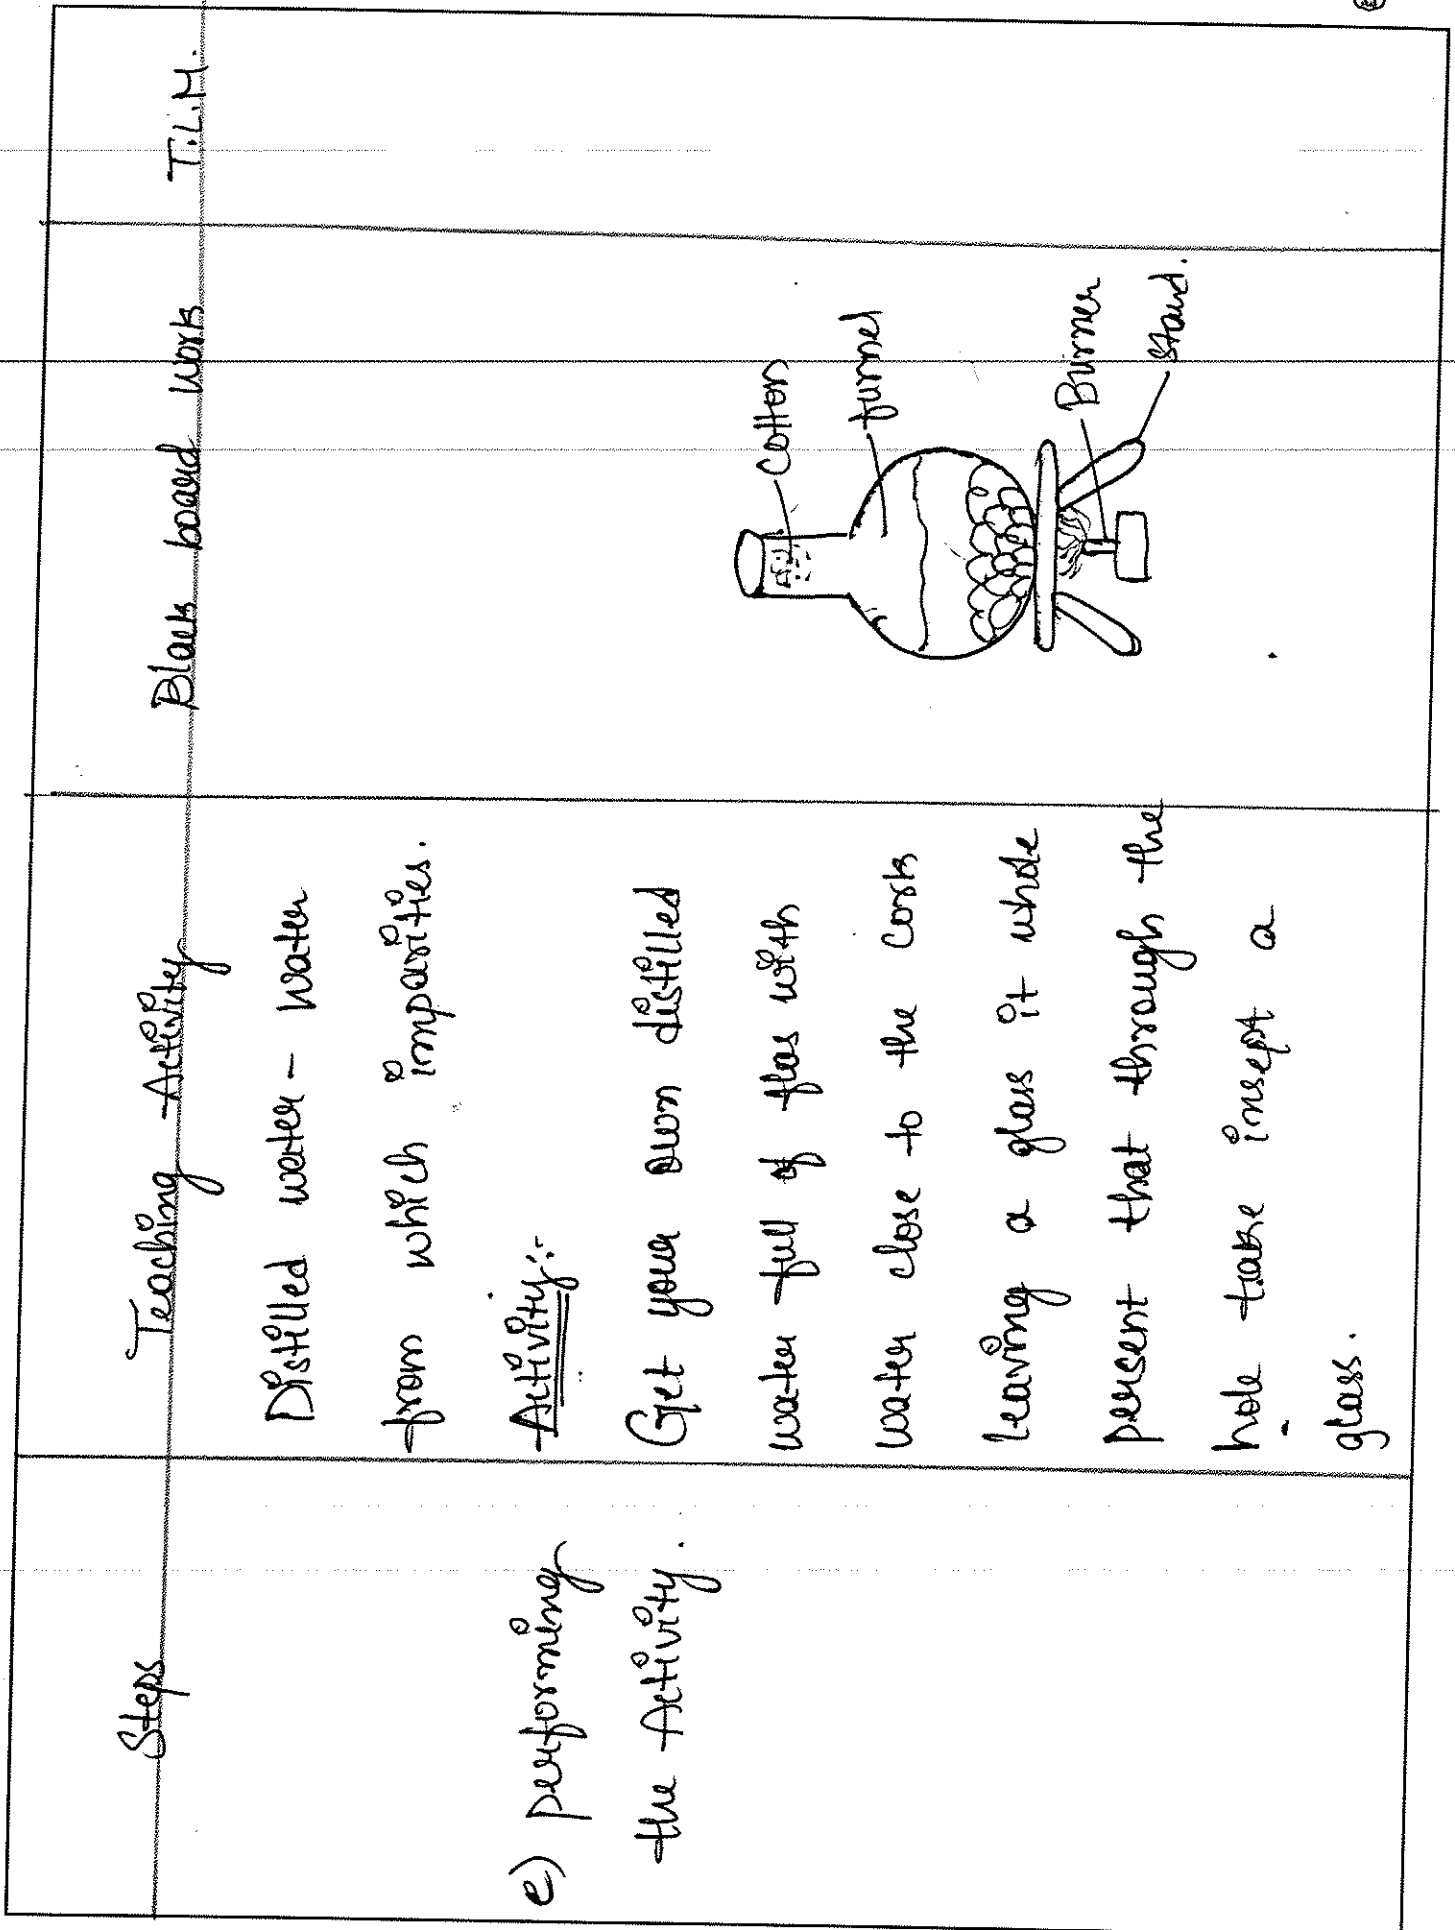 Steps
Teaching Activity
Black board work
T.L.M.
e) performing
the Activity.
Distilled water - water
from which imparities.
Activity:-
Get your own distilled
water full of flas with
water close to the cork
leaving a glass it whole
persent that through the
hole take insept a
glass.
Cotton
funnel
Burner
stand.